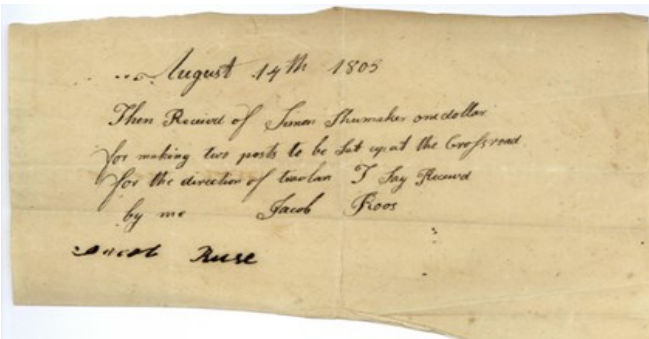 August 14th 1805
Then Receivd of Simon Shumaker one dollar
for making two posts to be Set up at the Crossroad
for the direction of I Say Receivd
by me Jacob Roos
Jacob Ruse